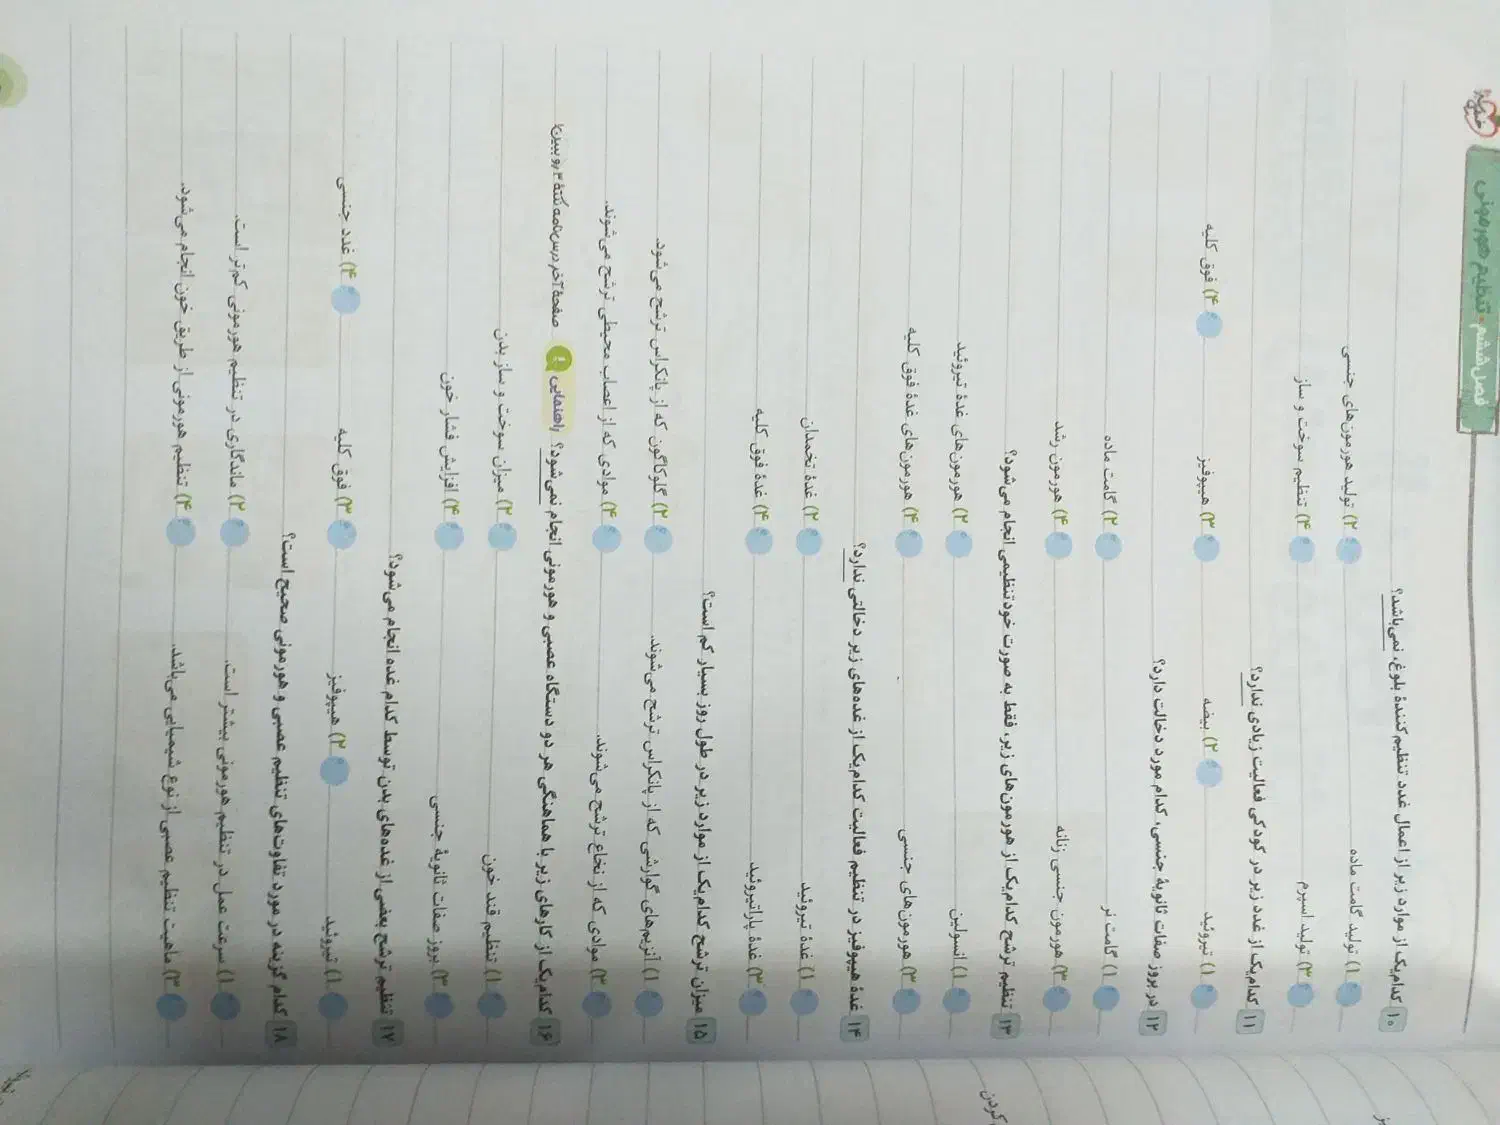 خیلی سبز
فصل ششم • تنظیم هورمونی
۱۰ کدام‌یک از موارد زیر از اعمال غدد تنظیم‌کنندهٔ بلوغ، نمی‌باشد؟
۱) تولید گامت ماده ۲) تولید هورمون‌های جنسی
۳) تولید اسپرم ۴) تنظیم سوخت و ساز
۱۱ کدام‌یک از غدد زیر در کودکی فعالیت زیادی ندارد؟
۱) تیروئید ۲) بیضه ۳) هیپوفیز ۴) فوق کلیه
۱۲ در بروز صفات ثانویهٔ جنسی، کدام مورد دخالت دارد؟
۱) گامت نر ۲) گامت ماده
۳) هورمون جنسی زنانه ۴) هورمون رشد
۱۳ تنظیم ترشح کدام‌یک از هورمون‌های زیر، فقط به صورت خودتنظیمی انجام می‌شود؟
۱) انسولین ۲) هورمون‌های غدهٔ تیروئید
۳) هورمون‌های جنسی ۴) هورمون‌های غدهٔ فوق کلیه
۱۴ غدهٔ هیپوفیز در تنظیم فعالیت کدام‌یک از غده‌های زیر دخالتی ندارد؟
۱) غدهٔ تیروئید ۲) غدهٔ تخمدان
۳) غدهٔ پاراتیروئید ۴) غدهٔ فوق کلیه
۱۵ میزان ترشح کدام‌یک از موارد زیر در طول روز بسیار کم است؟
۱) آنزیم‌های گوارشی که از پانکراس ترشح می‌شوند. ۲) گلوکاگون که از پانکراس ترشح می‌شود.
۳) موادی که از نخاع ترشح می‌شوند. ۴) موادی که از اعصاب محیطی ترشح می‌شوند.
۱۶ کدام‌یک از کارهای زیر با هماهنگی هر دو دستگاه عصبی و هورمونی انجام نمی‌شود؟ راهنمایی ! صفحهٔ آخر درس‌نامه نکتهٔ ۳ رو ببین!
۱) تنظیم قند خون ۲) میزان سوخت و ساز بدن
۳) بروز صفات ثانویهٔ جنسی ۴) افزایش فشار خون
۱۷ تنظیم ترشح بعضی از غده‌های بدن توسط کدام غده انجام می‌شود؟
۱) تیروئید ۲) هیپوفیز ۳) فوق کلیه ۴) غدد جنسی
۱۸ کدام گزینه در مورد تفاوت‌های تنظیم عصبی و هورمونی صحیح است؟
۱) سرعت عمل در تنظیم هورمونی بیشتر است. ۲) ماندگاری در تنظیم هورمونی کم‌تر است.
۳) ماهیت تنظیم عصبی از نوع شیمیایی می‌باشد. ۴) تنظیم هورمونی از طریق خون انجام می‌شود.
کردن